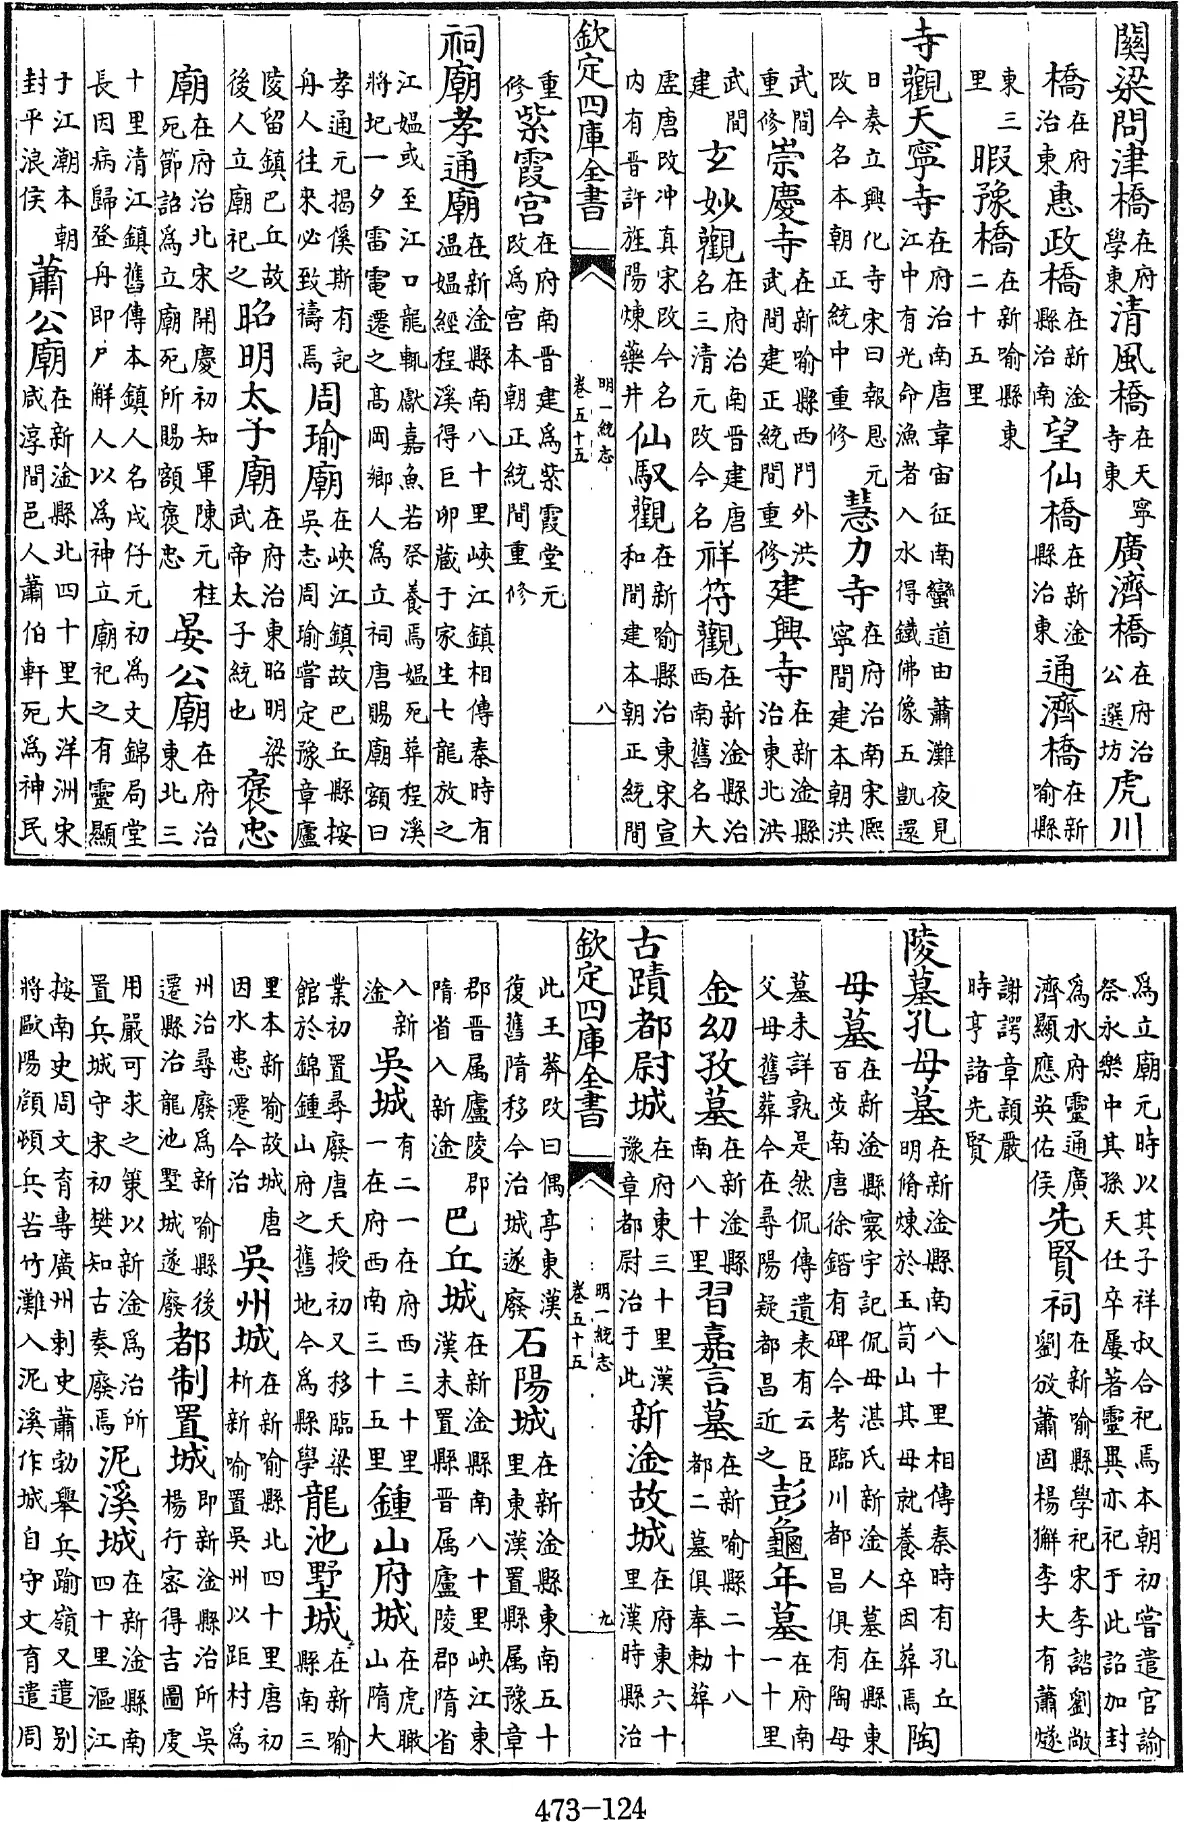 關梁問津橋在府學東清風橋在天寧寺東廣濟橋在府治公選坊虎川
橋在府治東惠政橋在新淦縣治南望仙橋在新淦縣治東通濟橋在新喻縣
東三里暇豫橋在新喻縣東二十五里
寺觀天寧寺在府治南唐韋宙征南蠻道由蕭灘夜見江中有光命漁者入水得鐵佛像五凱還
日奏立興化寺宋曰報恩元改今名本朝正統中重修慧力寺在府治南宋熈寧間建本朝洪
武間重修崇慶寺在新喻縣西門外洪武間建正統間重修建興寺在新淦縣治東北洪
武間建玄妙觀在府治南晋建唐名三清元改今名祥符觀在新淦縣治西南舊名大
虛唐改冲真宋改今名内有晋許旌陽煉藥井仙馭觀在新喻縣治東宋宣和間建本朝正統間
欽定四庫全書 明一統志卷五十五 八
重修紫霞宫在府南晋建為紫霞堂元改為宫本朝正統間重修
祠廟孝通廟在新淦縣南八十里峽江鎮相傳秦時有温媪經程溪得巨卵藏于家生七龍放之
江媪或至江口龍輒獻嘉魚若祭養焉媪死葬程溪將圮一夕雷電遷之髙岡鄉人為立祠唐賜廟額曰
孝通元揭傒斯有記舟人往來必致禱焉周瑜廟在峽江鎮故巴丘縣按吳志周瑜嘗定豫章廬
陵留鎮巴丘故後人立廟祀之昭明太子廟在府治東昭明梁武帝太子統也褒忠
廟在府治北宋開慶初知軍陳元桂死節詔為立廟死所賜額褒忠晏公廟在府治東北三
十里清江鎮舊傳本鎮人名戌仔元初為文錦局堂長因病歸登舟即尸解人以為神立廟祀之有靈顯
于江潮本朝封平浪侯蕭公廟在新淦縣北四十里大洋洲宋咸淳間邑人蕭伯軒死為神民
為立廟元時以其子祥叔合祀焉本朝初嘗遣官諭祭永樂中其孫天任卒屢著靈異亦祀于此詔加封
為水府靈通廣濟顯應英佑侯先賢祠在新喻縣學祀宋李諮劉敞劉攽蕭固楊獬李大有蕭燧
謝諤章頴嚴時亨諸先賢
陵墓孔母墓在新淦縣南八十里相傳秦時有孔丘明脩煉於玉笥山其母就養卒因葬焉陶
母墓在新淦縣寰宇記侃母湛氏新淦人墓在縣東百步南唐徐鍇有碑今考臨川都昌俱有陶母
墓未詳孰是然侃傳遺表有云臣父母舊葬今在尋陽疑都昌近之彭龜年墓在府南一十里
金幼孜墓在新淦縣南八十里習嘉言墓在新喻縣二十八都二墓俱奉勅葬
古蹟都尉城在府東三十里漢豫章都尉治于此新淦故城在府東六十里漢時縣治
欽定四庫全書 明一統志卷五十五 九
此王莽改曰偶亭東漢復舊隋移今治城遂廢石陽城在新淦縣東南五十里東漢置縣属豫章
郡晋属廬陵郡隋省入新淦巴丘城在新淦縣南八十里峽江東漢末置縣晋属廬陵郡隋省
入新淦吳城有二一在府西三十里一在府西南三十五里鍾山府城在虎瞰山隋大
業初置尋廢唐天授初又移臨梁館於錦鍾山府之舊地今為縣學龍池墅城在新喻縣南三
里本新喻故城唐因水患遷今治吳州城在新喻縣北四十里唐初析新喻置吳州以距村為
州治尋廢為新喻縣後遷縣治龍池墅城遂廢都制置城即新淦縣治所吳楊行密得吉圖虔
用嚴可求之策以新淦為治所置兵城守宋初樊知古奏廢焉泥溪城在新淦縣南四十里漚江
按南史周文育專廣州刺史蕭勃舉兵踰嶺又遣别將歐陽頠頓兵苦竹灘入泥溪作城自守文育遣周
473-124